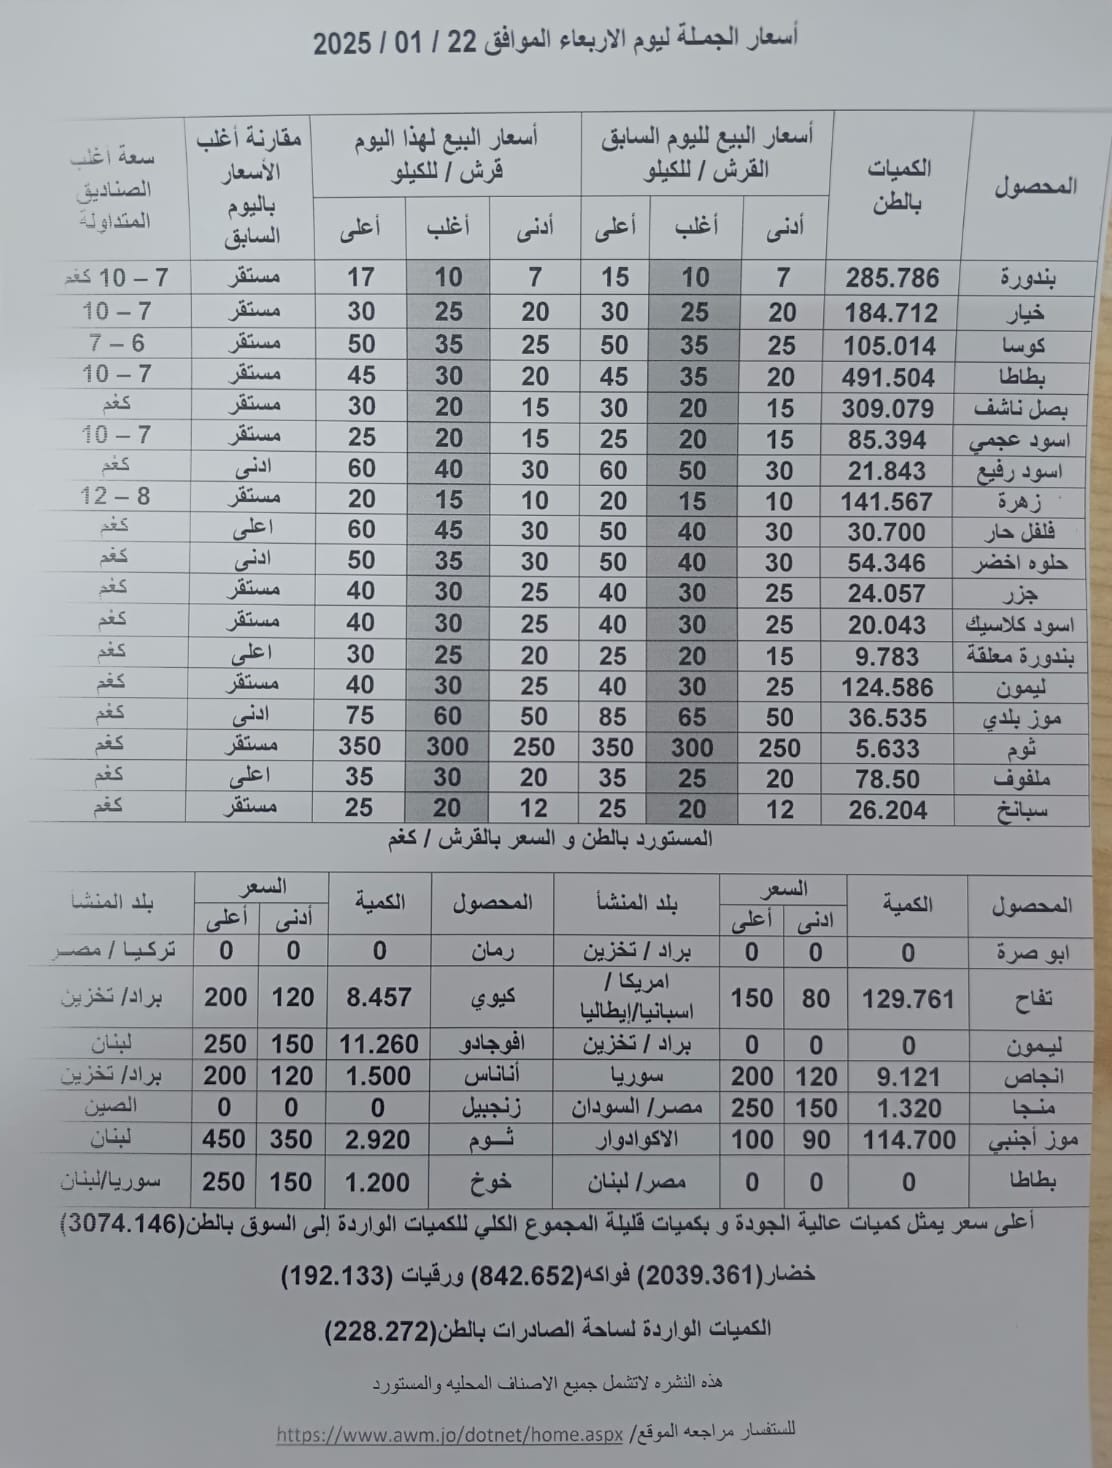 أسعار الجملة ليوم الاربعاء الموافق 22 / 01 / 2025
المحصول | الكميات بالطن | أسعار البيع لليوم السابق القرش / للكيلو | أسعار البيع لهذا اليوم قرش / للكيلو | مقارنة أغلب الأسعار باليوم السابق | سعة أغلب الصناديق المتداولة
أدنى | أغلب | أعلى | أدنى | أغلب | أعلى
بندورة | 285.786 | 7 | 10 | 15 | 7 | 10 | 17 | مستقر | 7 – 10 كغم
خيار | 184.712 | 20 | 25 | 30 | 20 | 25 | 30 | مستقر | 7 – 10
كوسا | 105.014 | 25 | 35 | 50 | 25 | 35 | 50 | مستقر | 6 – 7
بطاطا | 491.504 | 20 | 35 | 45 | 20 | 30 | 45 | مستقر | 7 – 10
بصل ناشف | 309.079 | 15 | 20 | 30 | 15 | 20 | 30 | مستقر | كغم
اسود عجمي | 85.394 | 15 | 20 | 25 | 15 | 20 | 25 | مستقر | 7 – 10
اسود رفيع | 21.843 | 30 | 50 | 60 | 30 | 40 | 60 | ادنى | كغم
زهرة | 141.567 | 10 | 15 | 20 | 10 | 15 | 20 | مستقر | 8 – 12
فلفل حار | 30.700 | 30 | 40 | 50 | 30 | 45 | 60 | اعلى | كغم
حلوه اخضر | 54.346 | 30 | 40 | 50 | 30 | 35 | 50 | ادنى | كغم
جزر | 24.057 | 25 | 30 | 40 | 25 | 30 | 40 | مستقر | كغم
اسود كلاسيك | 20.043 | 25 | 30 | 40 | 25 | 30 | 40 | مستقر | كغم
بندورة معلقة | 9.783 | 15 | 20 | 25 | 20 | 25 | 30 | اعلى | كغم
ليمون | 124.586 | 25 | 30 | 40 | 25 | 30 | 40 | مستقر | كغم
موز بلدي | 36.535 | 50 | 65 | 85 | 50 | 60 | 75 | ادنى | كغم
ثوم | 5.633 | 250 | 300 | 350 | 250 | 300 | 350 | مستقر | كغم
ملفوف | 78.50 | 20 | 25 | 35 | 20 | 30 | 35 | اعلى | كغم
سبانخ | 26.204 | 12 | 20 | 25 | 12 | 20 | 25 | مستقر | كغم
المستورد بالطن و السعر بالقرش / كغم
المحصول | الكمية | السعر | بلد المنشأ | المحصول | الكمية | السعر | بلد المنشأ
ادنى | أعلى | أدنى | أعلى
ابو صرة | 0 | 0 | 0 | براد / تخزين | رمان | 0 | 0 | 0 | تركيا / مصر
تفاح | 129.761 | 80 | 150 | امريكا / اسبانيا/إيطاليا | كيوي | 8.457 | 120 | 200 | براد/ تخزين
ليمون | 0 | 0 | 0 | براد / تخزين | افوجادو | 11.260 | 150 | 250 | لبنان
انجاص | 9.121 | 120 | 200 | سوريا | أناناس | 1.500 | 120 | 200 | براد/ تخزين
منجا | 1.320 | 150 | 250 | مصر/ السودان | زنجبيل | 0 | 0 | 0 | الصين
موز أجنبي | 114.700 | 90 | 100 | الاكوادوار | ثـوم | 2.920 | 350 | 450 | لبنان
بطاطا | 0 | 0 | 0 | مصر/ لبنان | خوخ | 1.200 | 150 | 250 | سوريا/لبنان
أعلى سعر يمثل كميات عالية الجودة و بكميات قليلة المجموع الكلي للكميات الواردة إلى السوق بالطن(3074.146)
خضار(2039.361) فواكه(842.652) ورقيات (192.133)
الكميات الواردة لساحة الصادرات بالطن(228.272)
هذه النشره لاتشمل جميع الاصناف المحليه والمستورد
للستفسار مراجعه الموقع/ https://www.awm.jo/dotnet/home.aspx